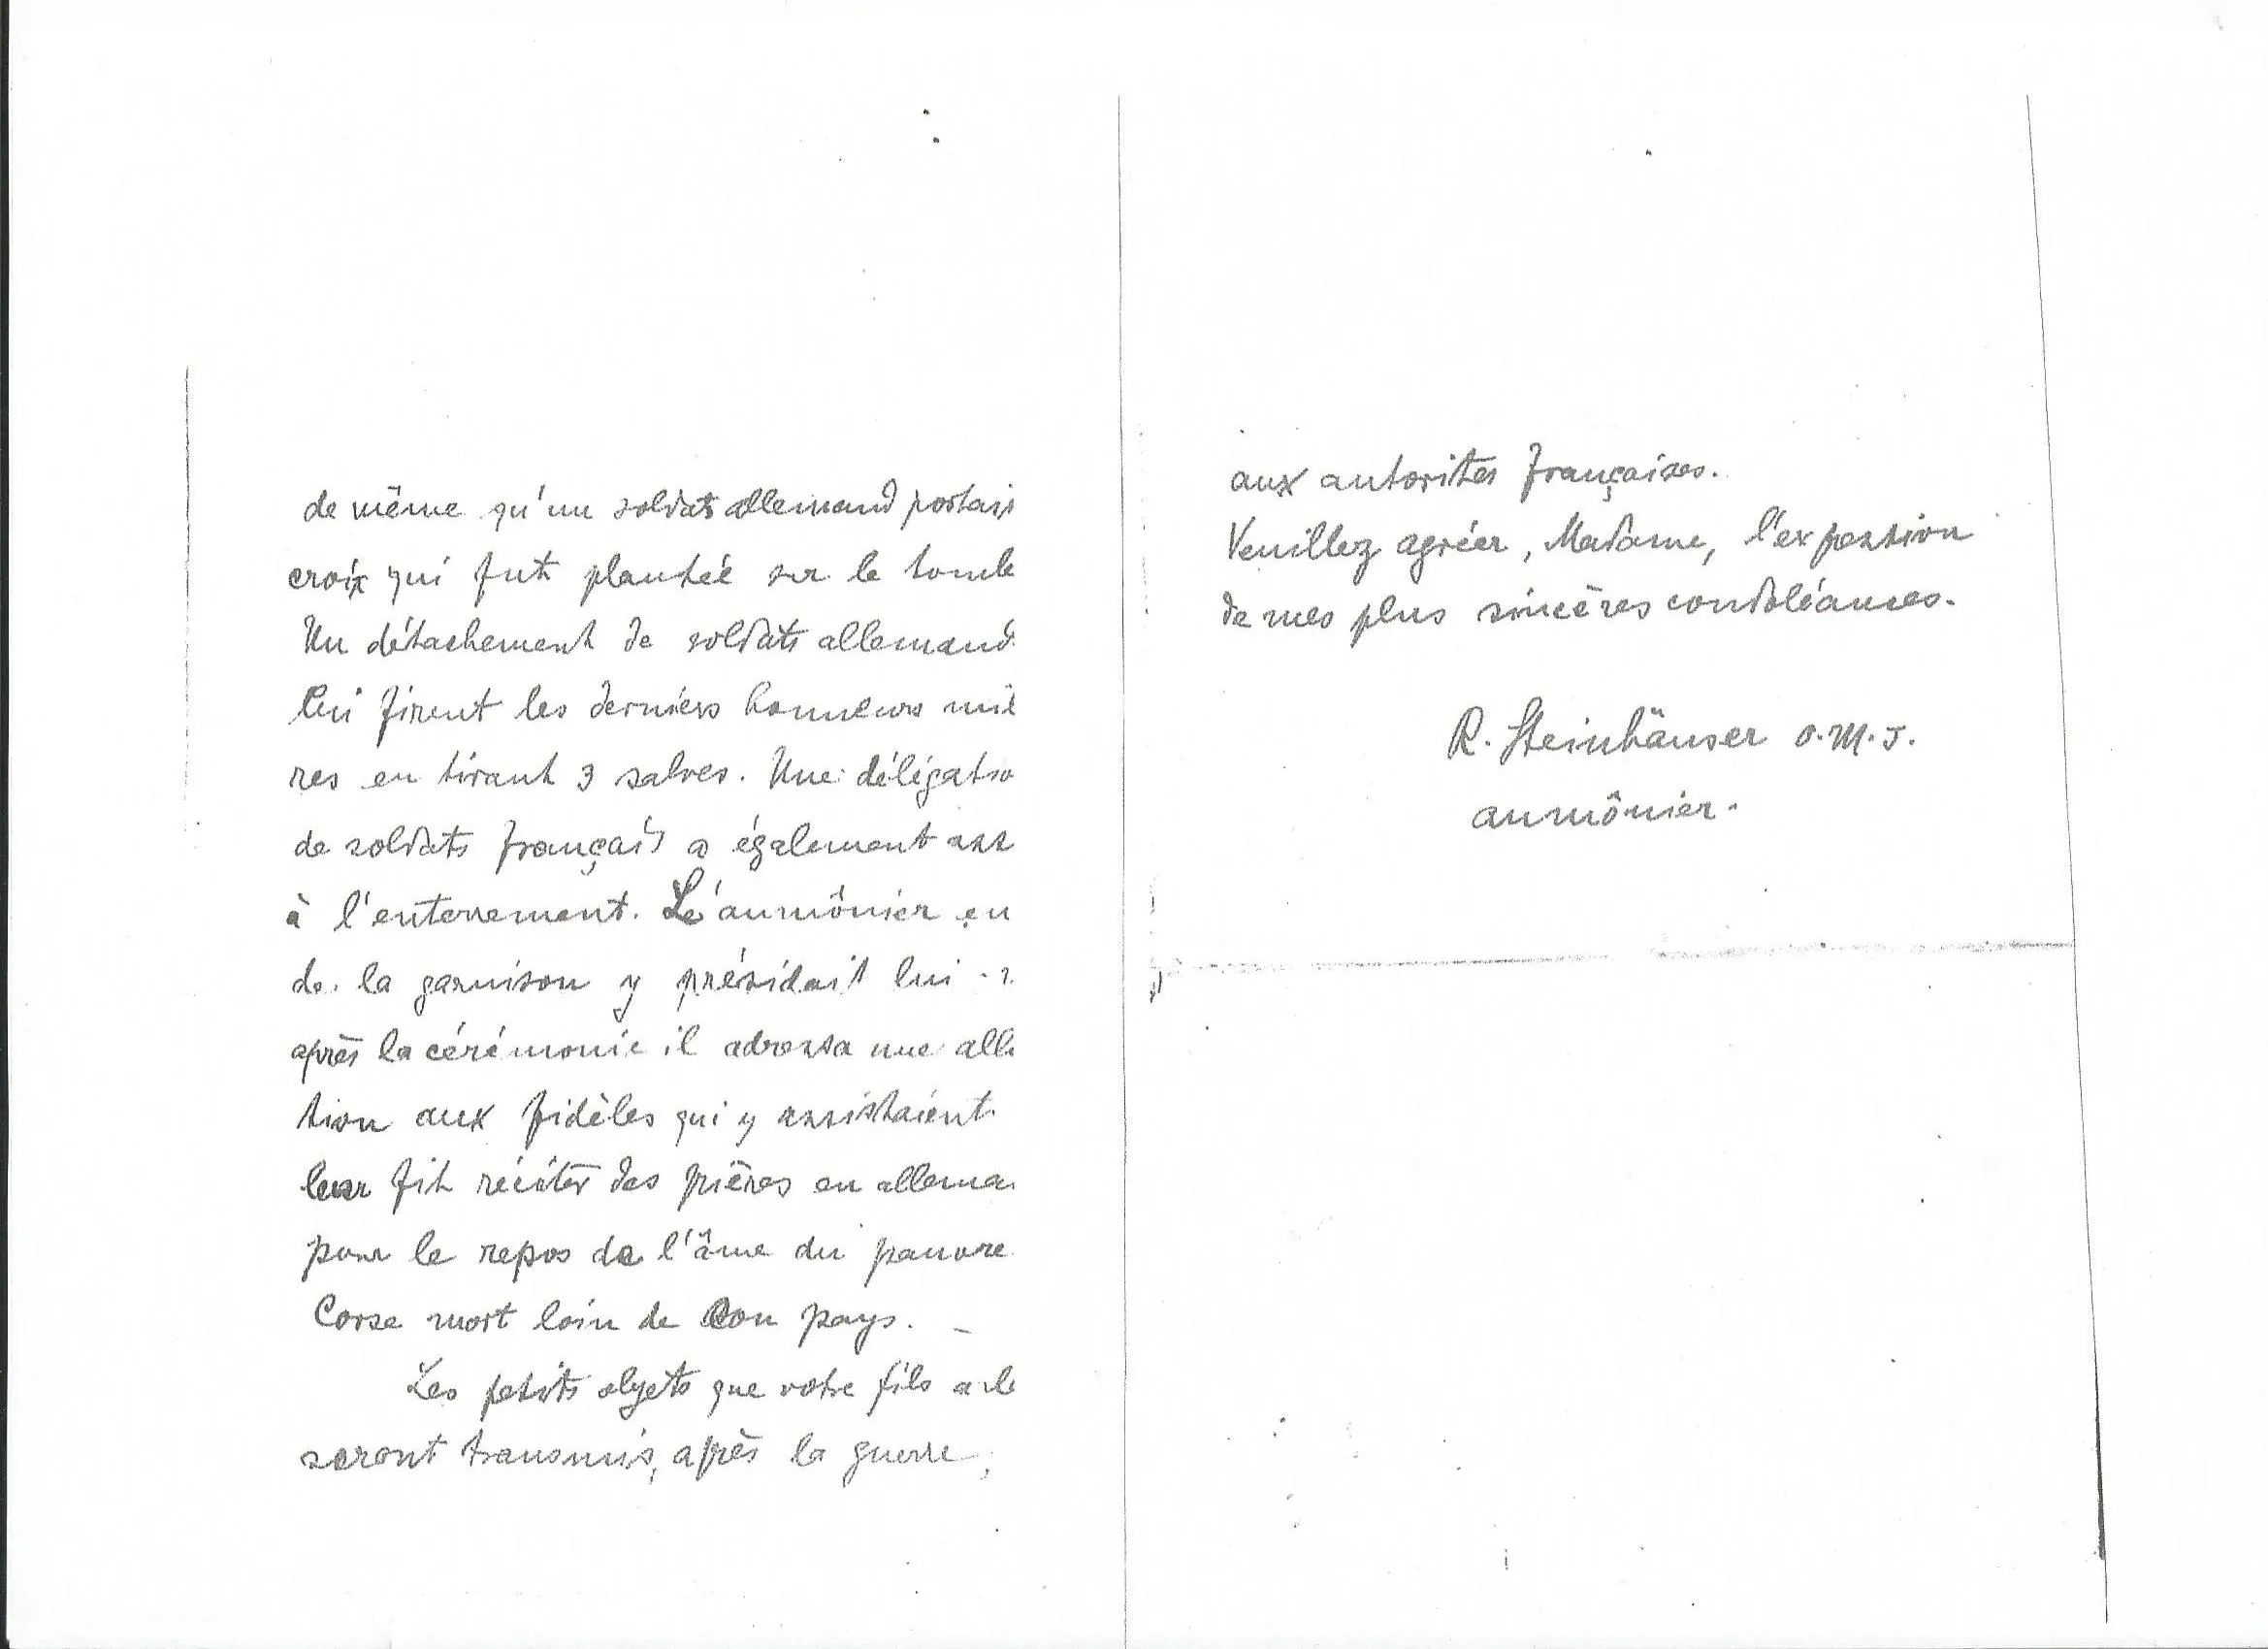 de même qu'un soldat allemand portait
croix qui fut plantée sur le tombe
Un détachement de soldats allemand
lui firent les derniers honneurs mili
res en tirant 3 salves. Une délégatio
de soldats français a également ass
à l'enterrement. L'aumônier en
de la garnison y présidait lui-
après la cérémonie il adressa une allo
tion aux fidèles qui y assistaient.
leur fit réciter des prières en allema
pour le repos de l'âme du pauvre
Corse mort loin de son pays. _
Les petits objets que votre fils a
seront transmis, après la guerre,
aux autorites françaises.
Veuillez agréer, Madame, l'expession
de mes plus sincères condoléances.
R. Steinhäuser O.M.J.
aumônier.